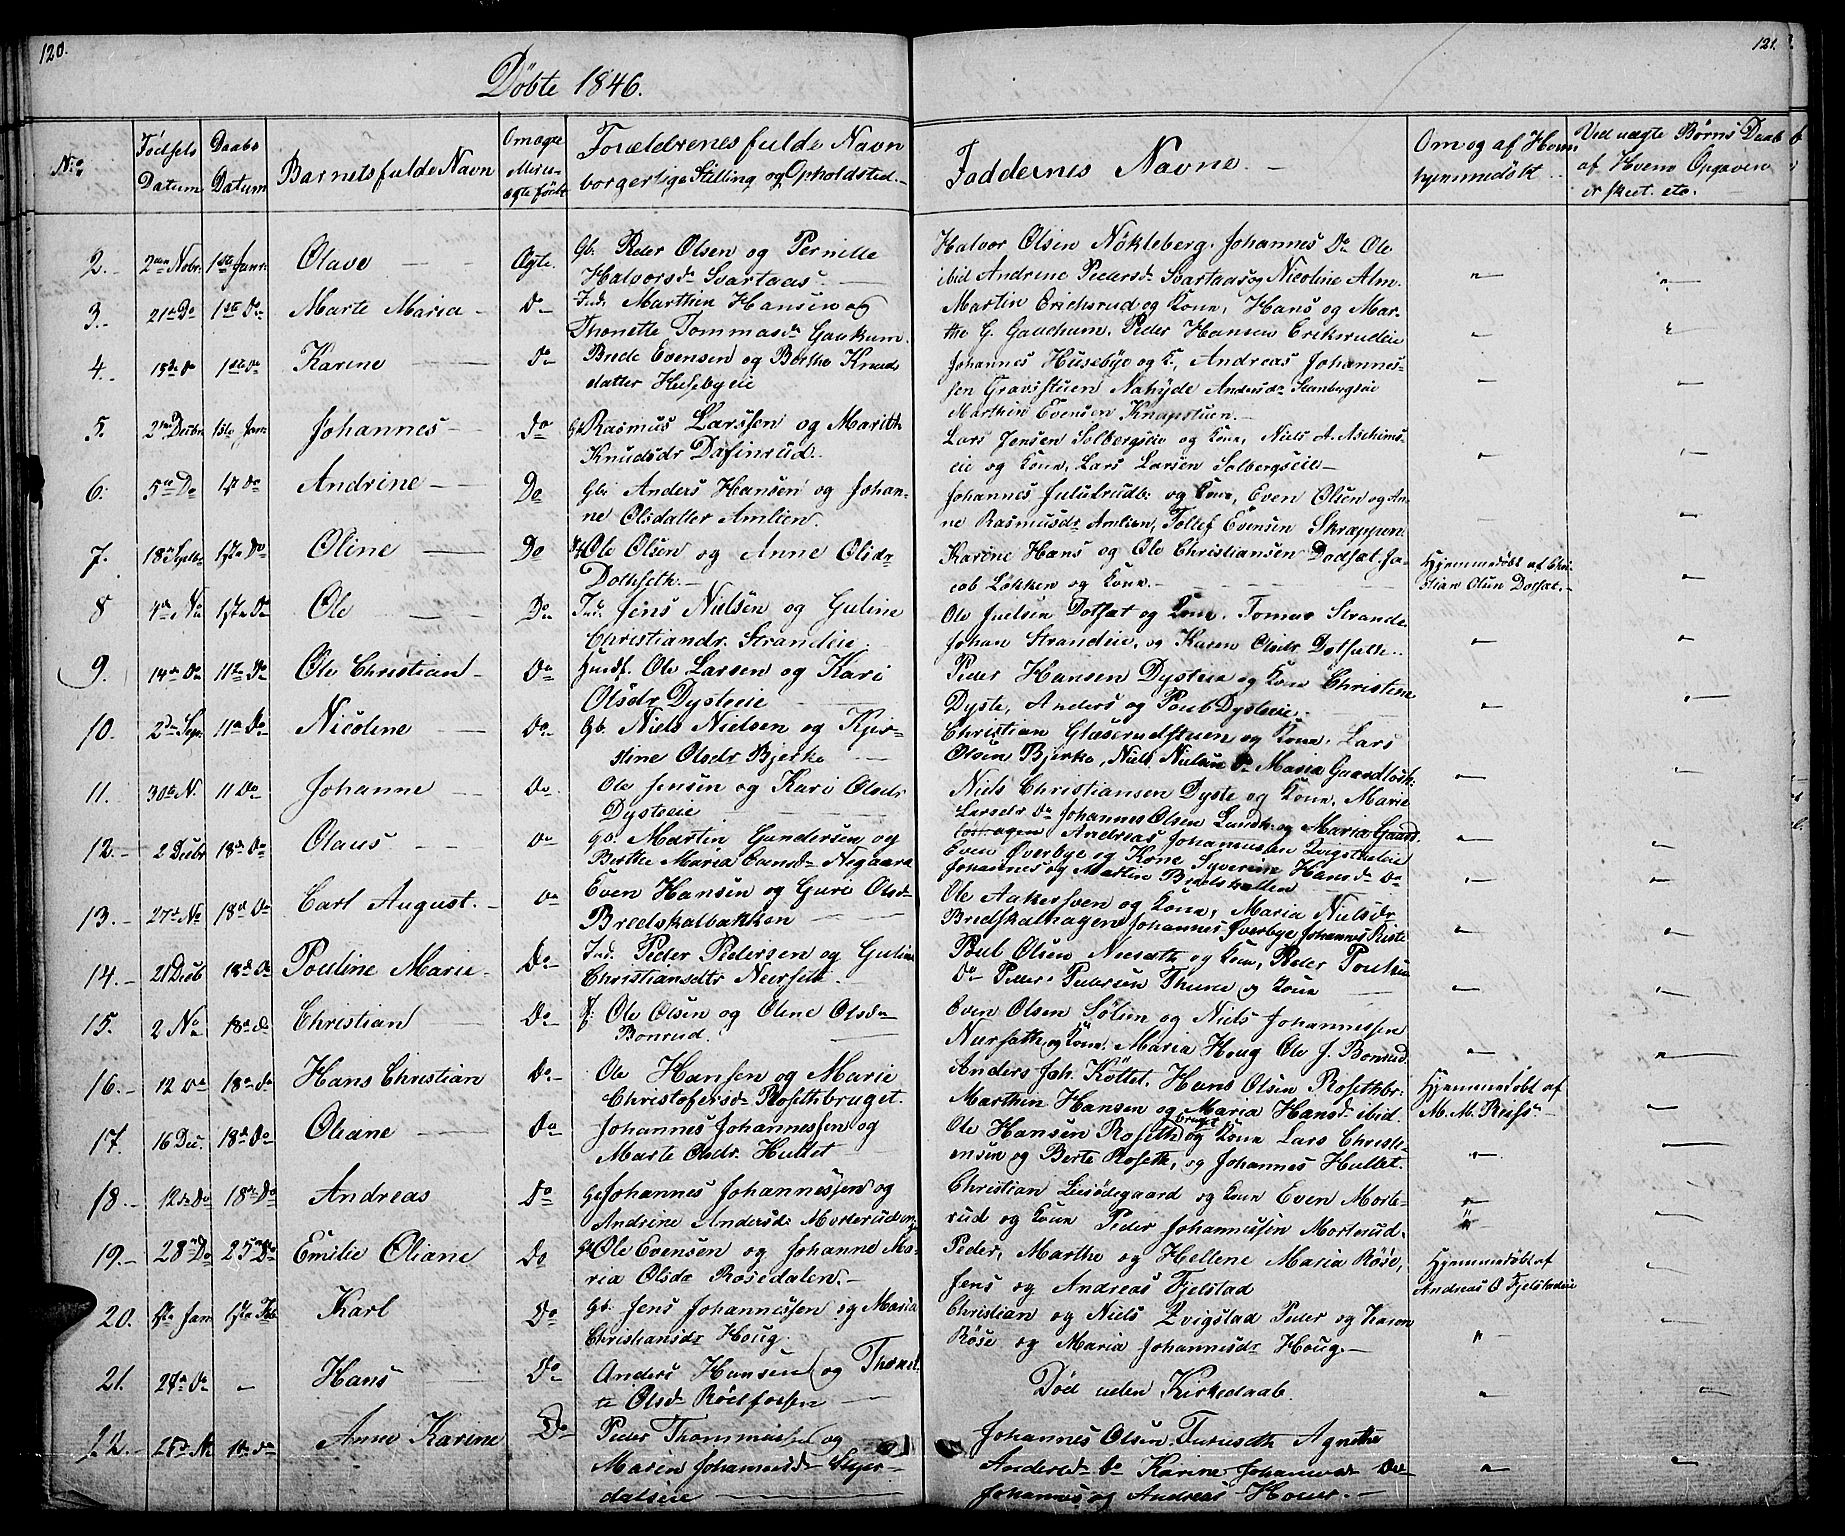 120.
121.
Döbte 1846.
No
Födsels Datum
Daabs Datum
Barnets fulde Navn
Om ægte
Forældrenes fulde Navn
borgerlige Stilling og Opholdsted.
Faddernes Navne.
Om og af Hvem
hjemmedöbt
Ved uægte Børns Daab
af Hvem Opgaven
er skeet. etc.
2. 2den Novbr. 1ste Janr. Olave Ægte. Gb. Peder Olsen og Pernille
Halvorsd. Svartaas
Halvor Olsen Nökleberg. Johannes Do Ole
ibid Andrine Pedersd. Svartaas og Nicoline Alm.
3. 21de Do 1ste Do Marte Maria Do Ind. Marthin Hansen og
Thonette Tommasdr Gaukum.
Martin Erichsrud og Kone, Hans og Mar-
the G. Gauchum, Peder Hansen Eriksrudeie
4. 15de Do 1ste Do Karine Do Brede Evensen og Berthe Knuds
datter Husebyeie
Johannes Husebye og K., Andreas Johannes-
sen Gravistuen Andersdr Stenbergseie
Marthin Evensen Knapstuen.
5. 2den Decbr 1ste Janr. Johannes Do Gb Rasmus Larssen og Marith
Knudsdr Dafinrud.
Lars Jensen Solbergseie og Kone, Niels A. Aschims-
eie og Kone, Lars Larsen Solbergseie
6. 5te Do 1ste Do Andrine Do Gb. Anders Hansen og Johan-
ne Olsdatter Amlien.
Johannes og Kone, Even Olsen og An-
ne Rasmusdr Amlien, Tollef Evensen Skrappen
7. 18de 1ste Do Oline Do Ole Olsen og Anne Olsdr
Dothseth.
Karine Hans og Ole Christiansen Dodsæt, Ja-
cob Løkken og Kone.
Hjemmedöbt af Chri-
stian Olsen Dotsæt.
8 1ste Do Ole Do Ind. Jens Nielsen og Guline
Christiandr. Strandeie
Ole Juelsen Dotsæt og Kone. Tomas Strande
Johan Strandeie, og Karen Olsdr Dotseth.
9. 14de Do 11te Do Ole Christian Do Husf. Ole Larsen og Kari
Olsdr Dysteeie
Peder Hansen Dysteeie og Kone Christine
Dyste, Anders og Poul Dysteeie.
10. 2den Sep. 11te Do Nicoline Do Gb. Niels Nielsen og Kjer-
stine Olsdr Bjerke
Christian Glæserudstuen og Kone, Lars
Olsen Bjerke, Niels Nielsen Do Maria Gaardløsk.
11. 30te N. 11 Do Johanne Do. Ole Jensen og Kari Olsdr
Dysteeie
Niels Christiansen Dyste og Kone, Marie
Larsdr Do Johannes Olsen Lunds. og Maria Gaard
12. 2 Decbr 18de Do Olaus Do Gb. Martin Gundersen og
Berthe Maria Negaard
Andreas Johannessen Qvigstadeie
Even Överbye og Kone Syverine Hansd. Do
13. 27de No 18de Do Carl August. Do Even Hansen og Guri Olsd.
Bredskalbakken
Johannes og Marthin Bredskallen
Ole Aakersveen og Kone, Maria Nielsdr
Bredskalhagen Johannes Överbye Johannes Riste
14. 21 Decb 18de Do Pouline Marie Do Ind. Peder Pedersen og Guline
Christiansdtr Neerseth.
Poul Olsen Neerseth og Kone, Peder Poulsen
Do Peder Pedersen Thune og Kone
15. 2 No 18de do Christian Do Ole Olsen og Oline Olsdr
Bonrud.
Even Olsen Sölien og Niels Johannessen
Nerseth og Kone. Maria Houg Ole J. Bonrud.
16. 12 do 18de do Hans Christian Do Ole Hansen og Marie
Christofersdr Rosethbruget.
Anders Joh. Kottet, Hans Olsen Rosethbr.
Marthin Hansen og Maria Hansd. ibid.
Hjemmedöbt af
M. M.
17. 16 Dec. 18de Do Oliane Do Johannes Johannessen og
Marte Olsdr. Hullet
Ole Hansen Roseth bruget og Kone Lars Christi-
ensen og Berte Roseth, og Johannes Hullet.
18. 12de Do 18de Do Andreas Do Gb Johannes Johannessen og
Andrine Andersd. Morterud
Christian Leisødegaard og Kone Even Morte-
rud og Kone Peder Johannessen Morterud.
19. 28de Do 25de Do Emilie Oliane Do Gb Ole Evensen og Johanne Ma-
ria Olsdr Rosedalen.
Peder, Marthe og Hellene Maria Röse,
Jens og Andreas Fjelstad
Hjemmedöbt af
Andreas O Fjelstadeie
20. 1ste Jan 1ste Feb Karl Do Gb. Jens Johannessen og Maria
Christiansdr Houg.
Christian og Niels Qvigstad Peder og Karen
Röse og Maria Johannesdr Houg.
21. 24de Do Hans Do Anders Hansen og Thonet-
te Olsd. Rödfossen
Död uden Kirkedaab.
22. 25de N. 1te do Anne Karine Do Peder Thommassen og
Maren Johannesdr Stejer-
dalseie
Johannes Olsen Agnethe
Andersd. Do Karine Johannesd. Do
Johannes og Andreas